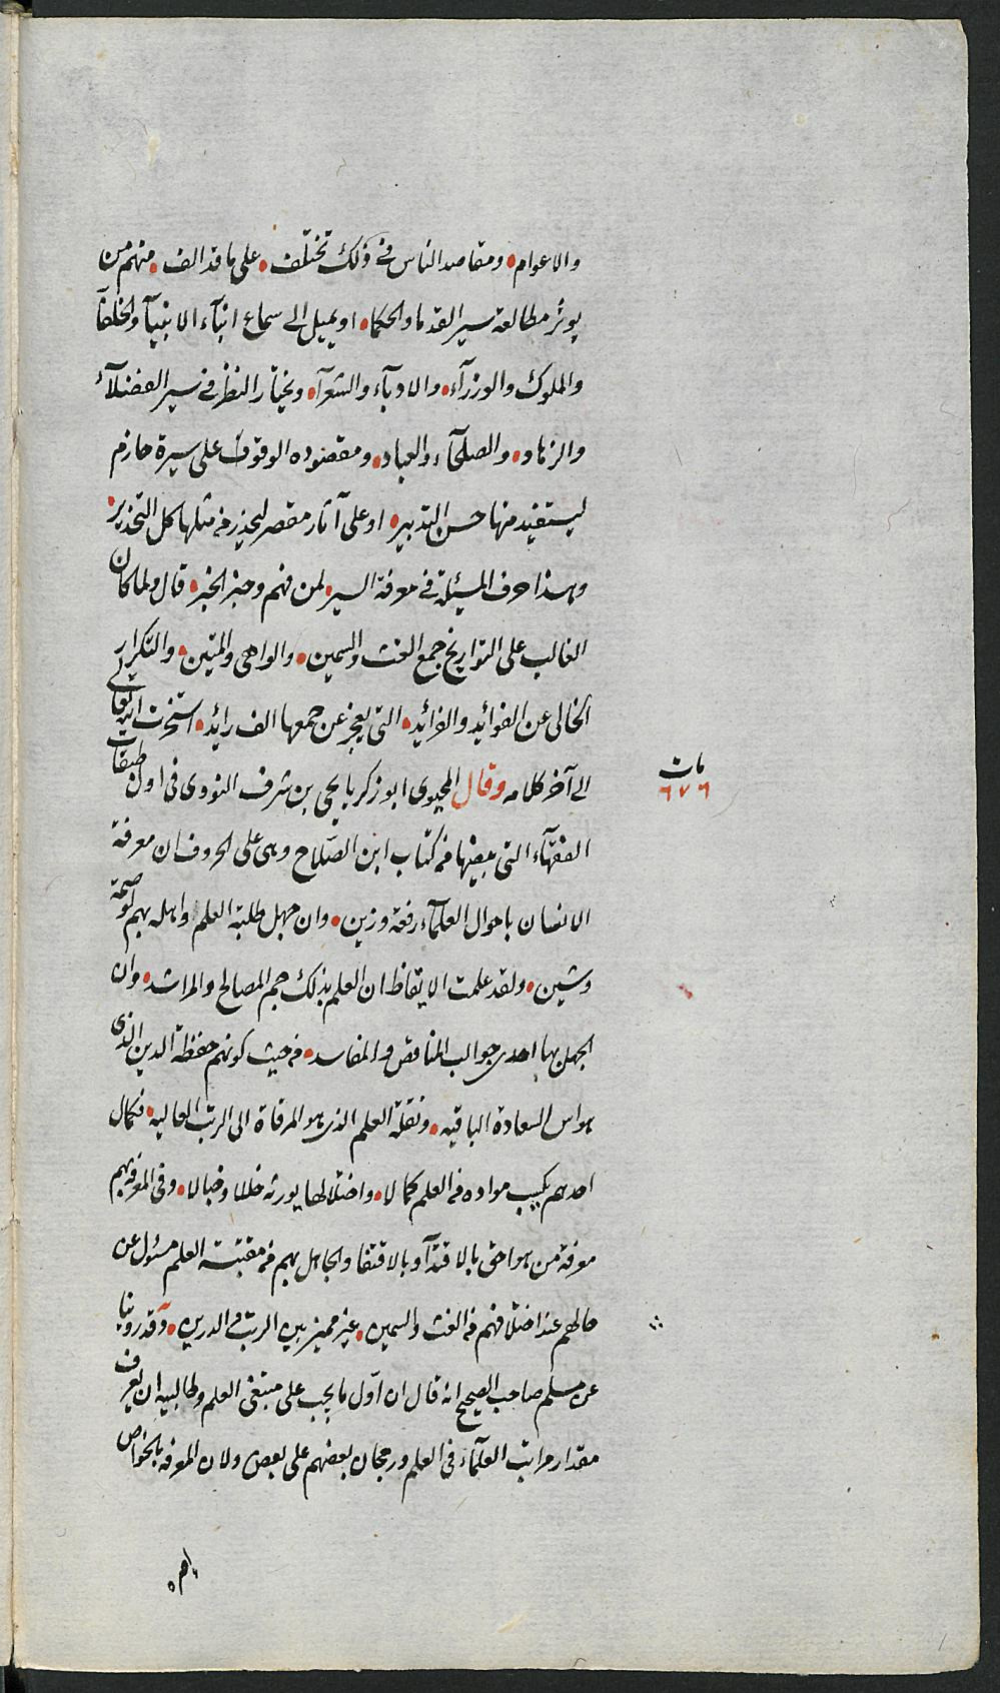 والاعوام ومقاصد الناس فى ذلك تختلف على ما قد الف منهم من
يوثر مطالعة سير القدما والحكما او يميل الى سماع انبآء الانبيآ والخلفآ
والملوك والوزرآء والادبآء والشعرآ ويختار النظر فى سير الفضلآء
والزهاد والصلحآء والعباد ومقصوده الوقوف على سيرة حازم
ليستفيد منها حسن التدبير او على آثار مقصر ليحذر من مثلها كل التحذير
وبهذا عرف المسئلة فى معرفة السير لمن فهم وخبر الخبر قال ولما كان
الغالب على التواريخ جمع الغث والسمين والواهى والمتين والتكرار
الخالى عن الفوائد والفرائد التى يعجز عن جمعها الف رائد استخرت الله تعالى
الى آخر كلامه وقال المحيوى ابو زكريا يحيى بن شرف النووى فى اول طبقات
مات
٦٧٦
الفقهآء التى بيضها من كتاب ابن الصلاح وهى على الحروف ان معرفة
الانسان باحوال العلمآء رفعة وزين وان جهل طلبة العلم واهله بهم لوصمة
وشين ولقد علمت الايقاظ ان العلم بذلك جم المصالح والمراشد وان
الجهل بها احدى جوالب المناقص والمفاسد من حيث كونهم حفظة الدين الذى
هو اس السعادة الباقيه ونقلة العلم الذى هو المرقاة الى الرتب العاليه فكمال
احدهم يكسب مواده من العلم كمالا واختلالها يورثه خللا وخبالا وفى المعرفة بهم
معرفة من هو احق بالاقتدآ وبالاقتفا والجاهل بهم من مقتبسة العلم مسئول عن
حالهم عند اختلافهم من الغث والسمين غير مميز بين الرتب فى الدرين وقد روينا
عن مسلم صاحب الصحيح انه قال ان اول ما يجب على مبتغى العلم وطالبيه ان يعرف
مقدار مراتب العلمآء فى العلم ورجحان بعضهم على بعض ولان المعرفة بالخواص